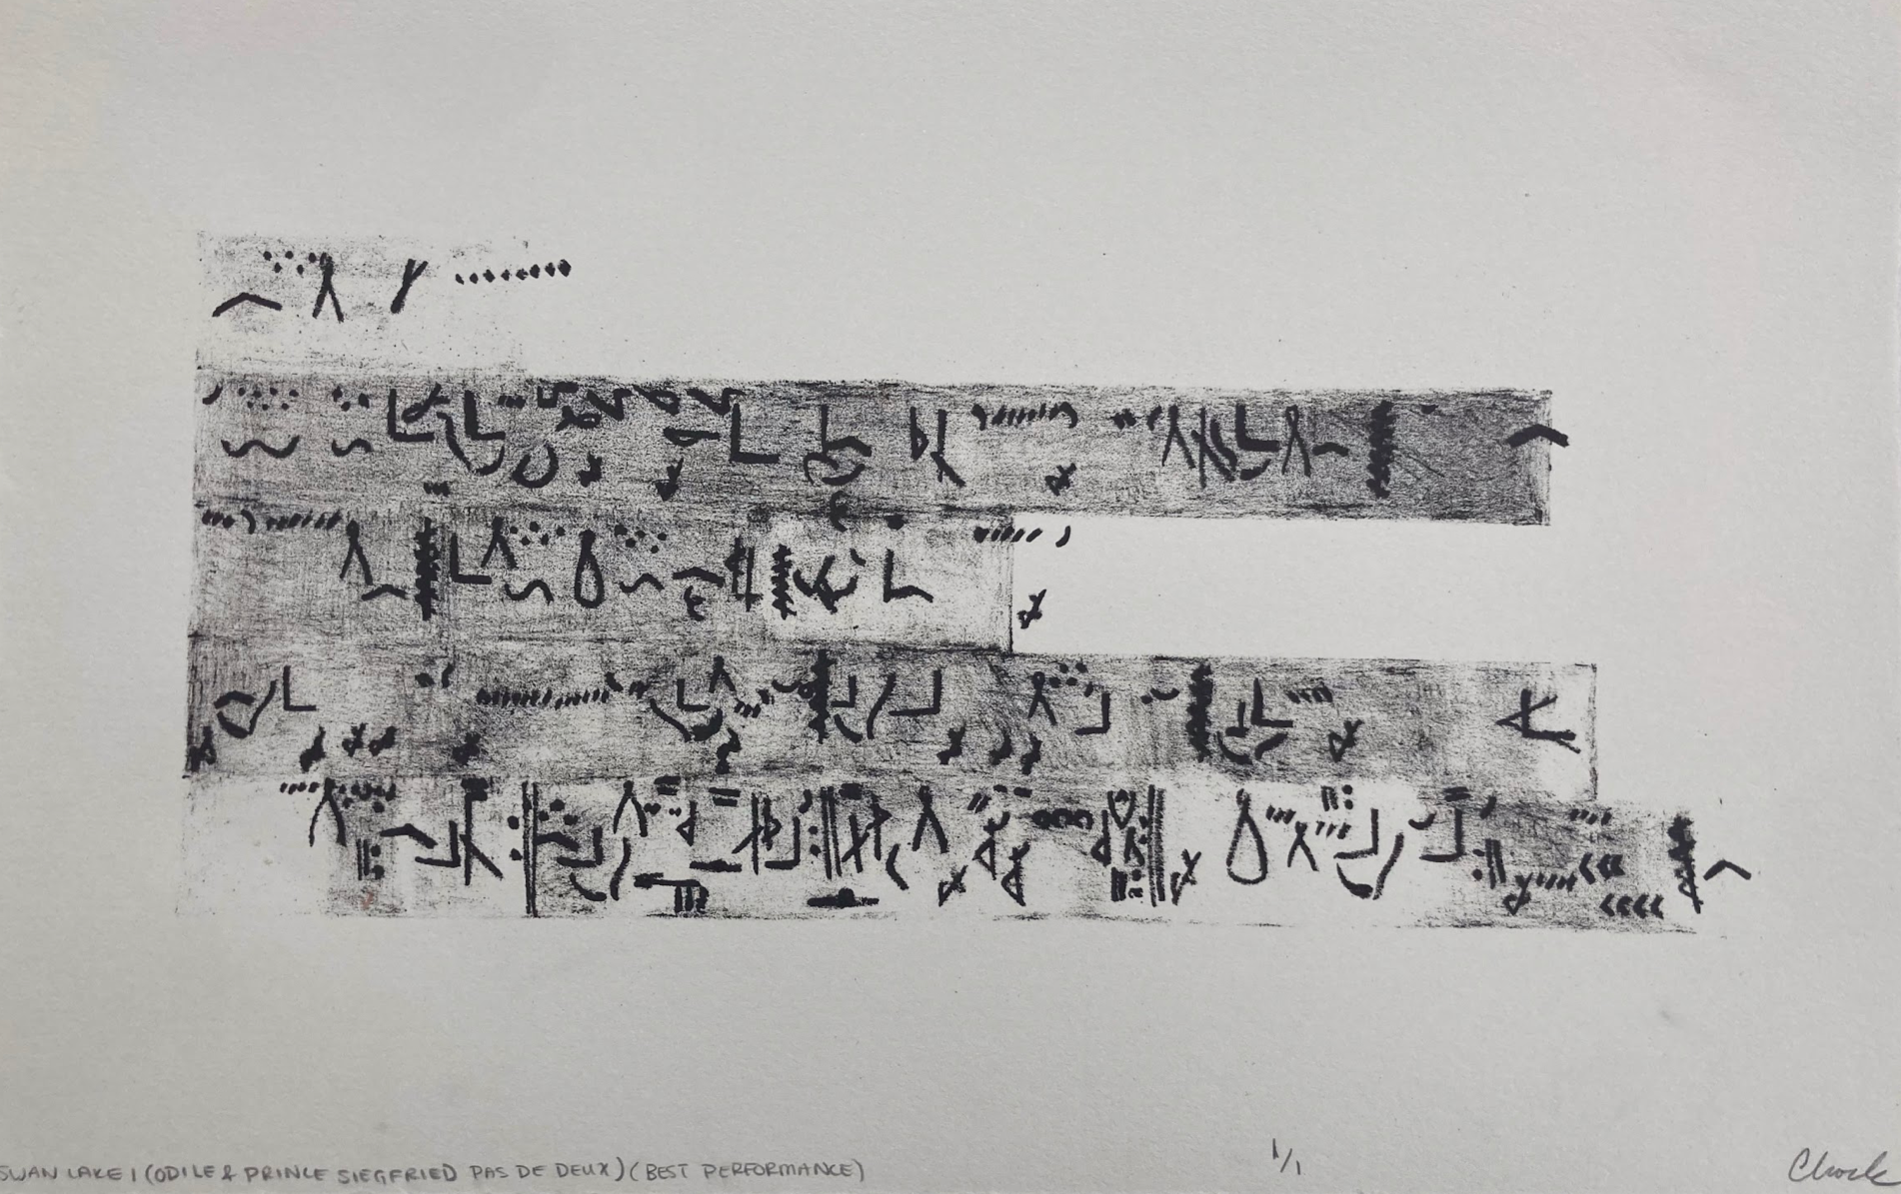 SWAN LAKE 1 (ODILE & PRINCE SIEGFRIED PAS DE DEUX) (BEST PERFORMANCE)
1/1
Chock